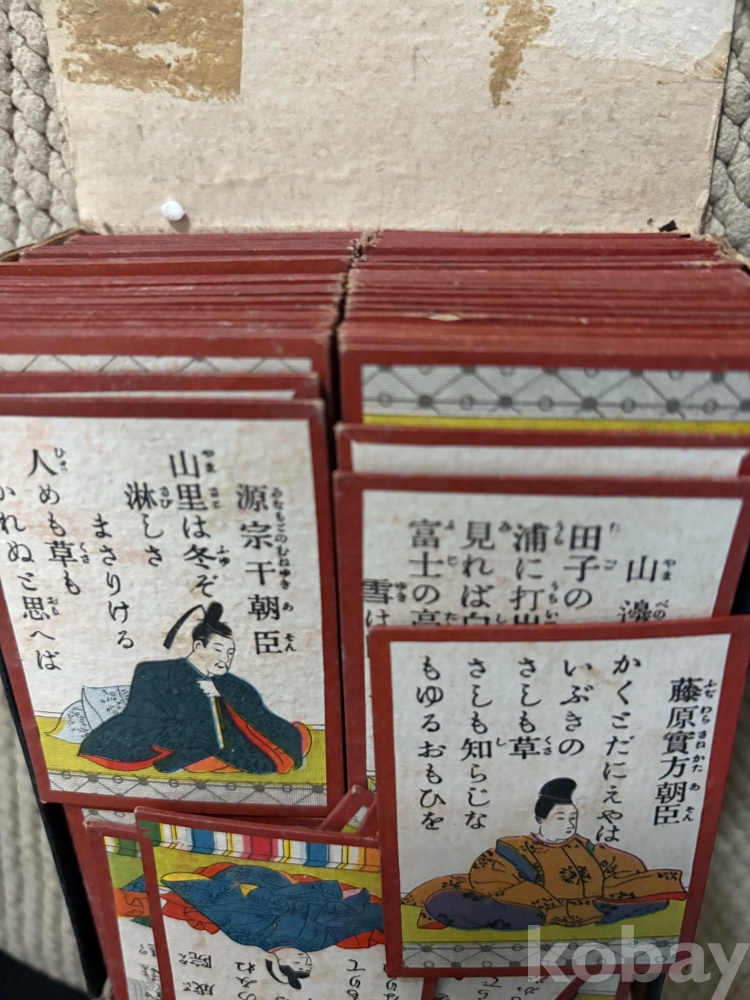 源宗干朝臣
山里は冬ぞ
淋しさ
まさりける
人めも草も
かれぬと思へば
山邊
田子の
浦に打出
見れば白
富士の高
雪は
藤原實方朝臣
かくとだにえやは
いぶきの
さしも草
さしも知らじな
もゆるおもひを
kobay